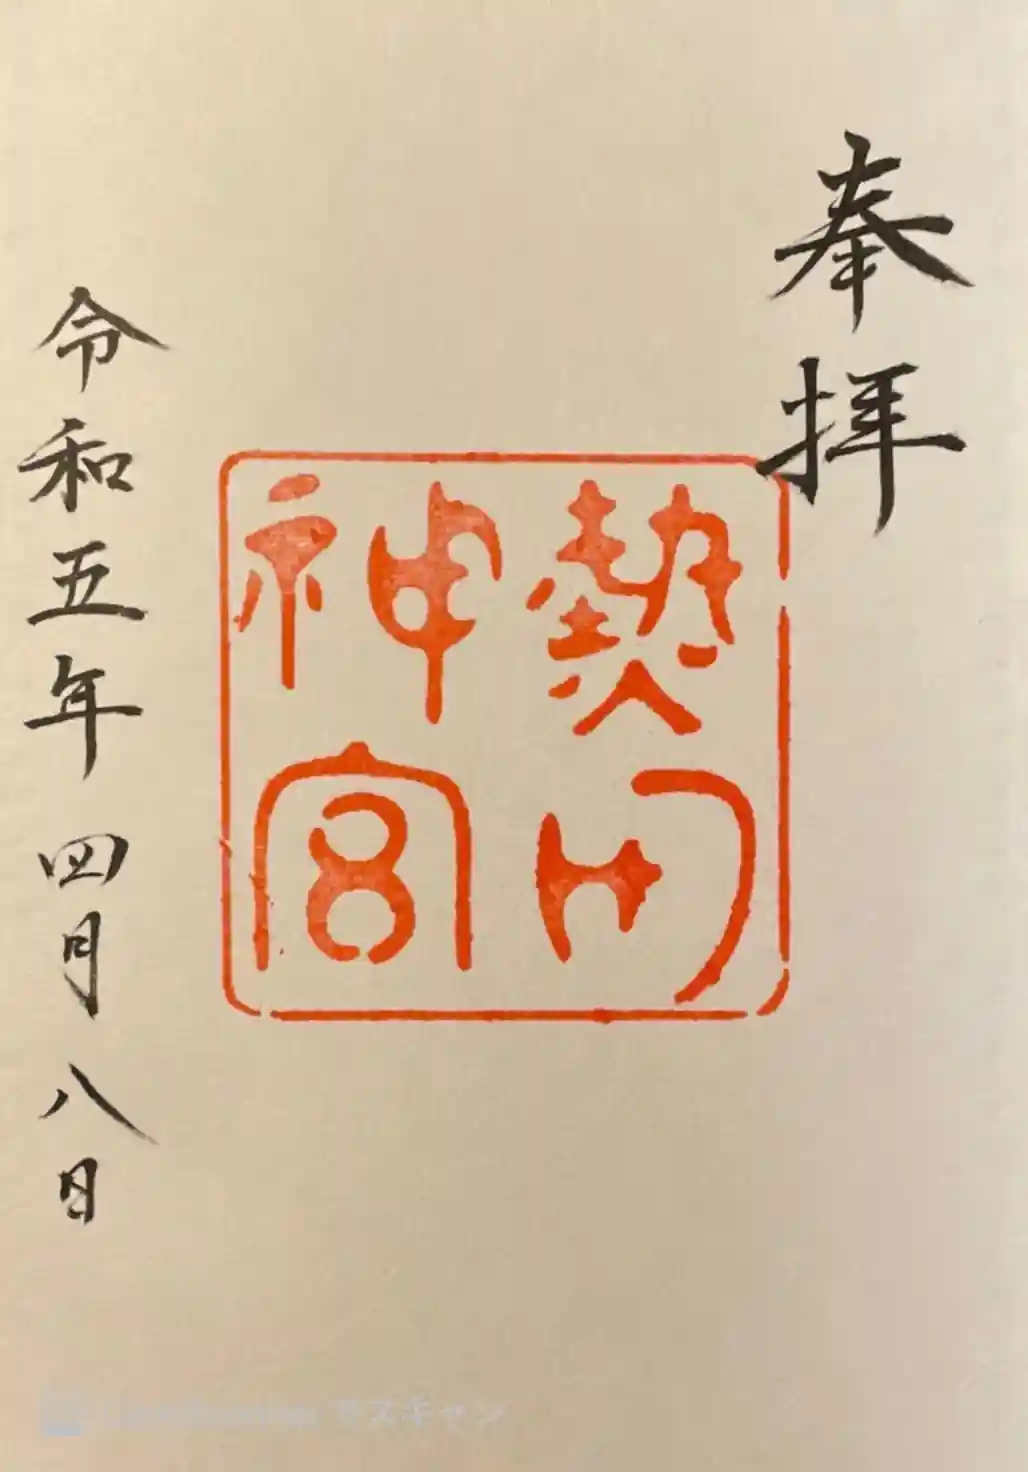 奉拝
熱田
神宮
令和五年四月八日
でスキャン